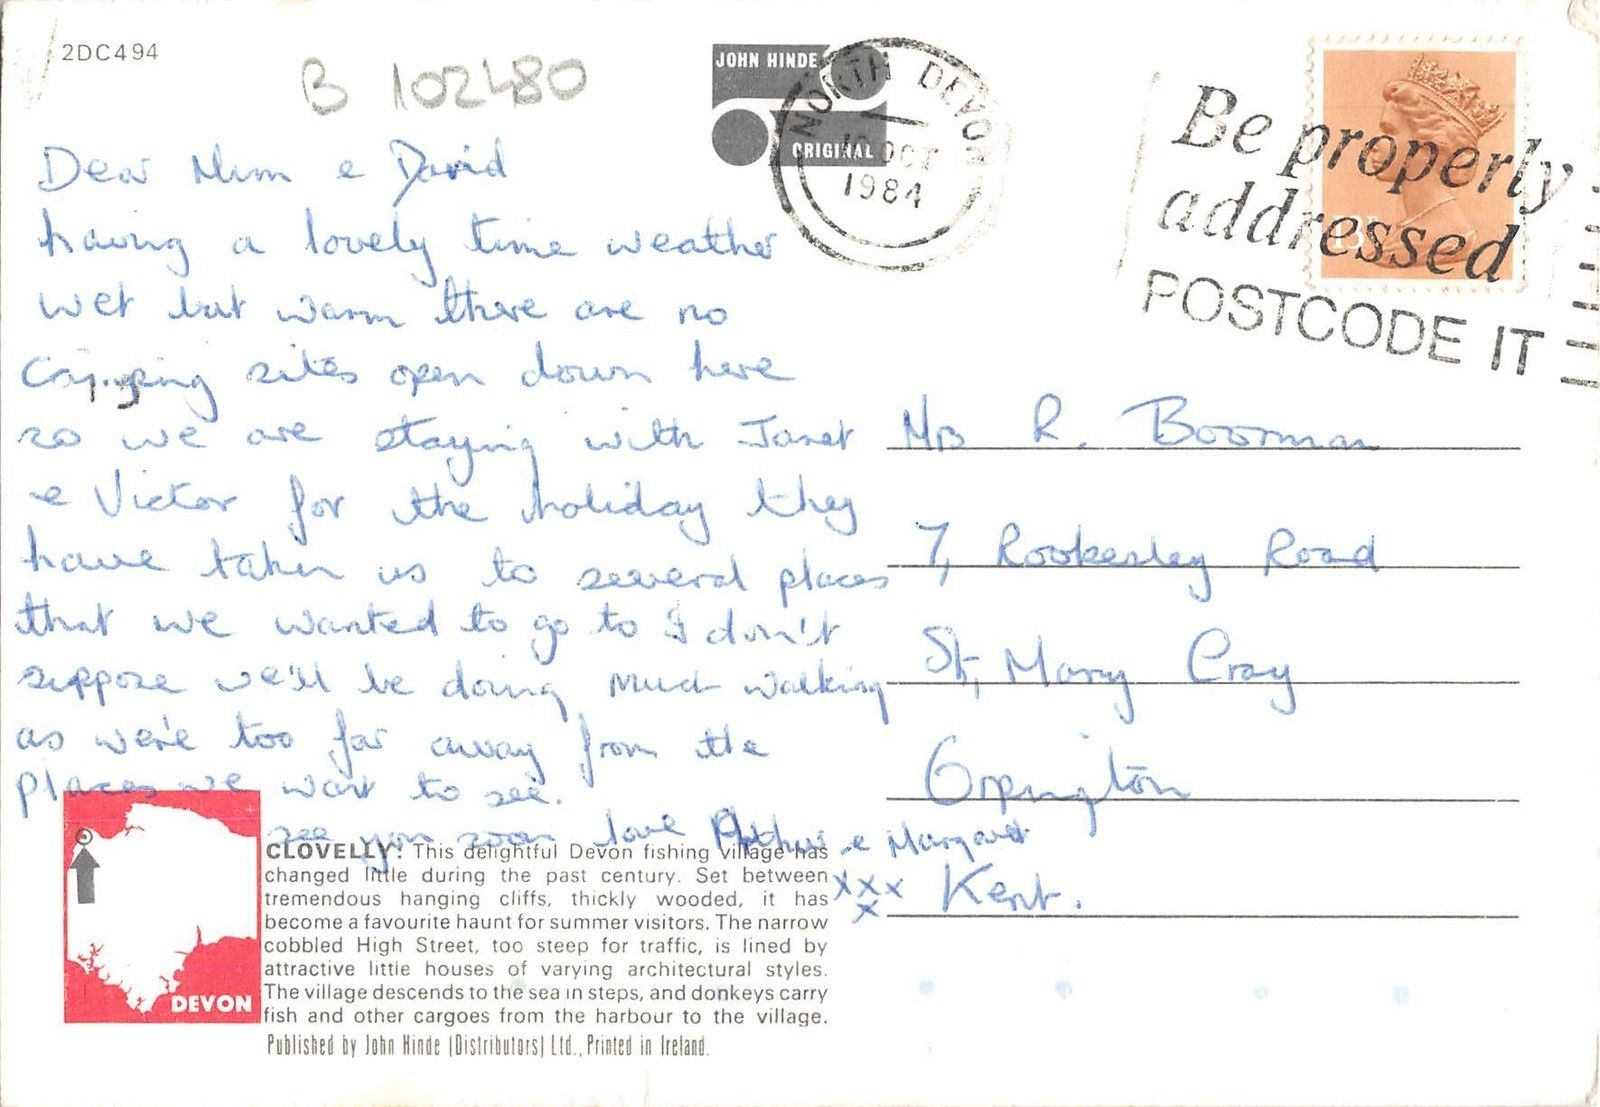 2DC494
B 102480
JOHN HINDE
ORIGINAL
NORTH DEVON
OCT
1984
Be properly
addressed
POSTCODE IT
13
Dear Mum & David
having a lovely time weather
wet but warm there are no
camping sites open down here
so we are staying with Janet
& Victor for the holiday they
have taken us to several places
that we wanted to go to I don't
suppose we'll be doing much walking
as we're too far away from the
places we want to see.
see you soon love Arthur & Margaret
xxx
x
Mrs R. Boorman
7, Rookesley Road
St, Mary Cray
Orpington
Kent.
DEVON
CLOVELLY: This delightful Devon fishing village has
changed little during the past century. Set between
tremendous hanging cliffs, thickly wooded, it has
become a favourite haunt for summer visitors. The narrow
cobbled High Street, too steep for traffic, is lined by
attractive little houses of varying architectural styles.
The village descends to the sea in steps, and donkeys carry
fish and other cargoes from the harbour to the village.
Published by John Hinde (Distributors) Ltd., Printed in Ireland.